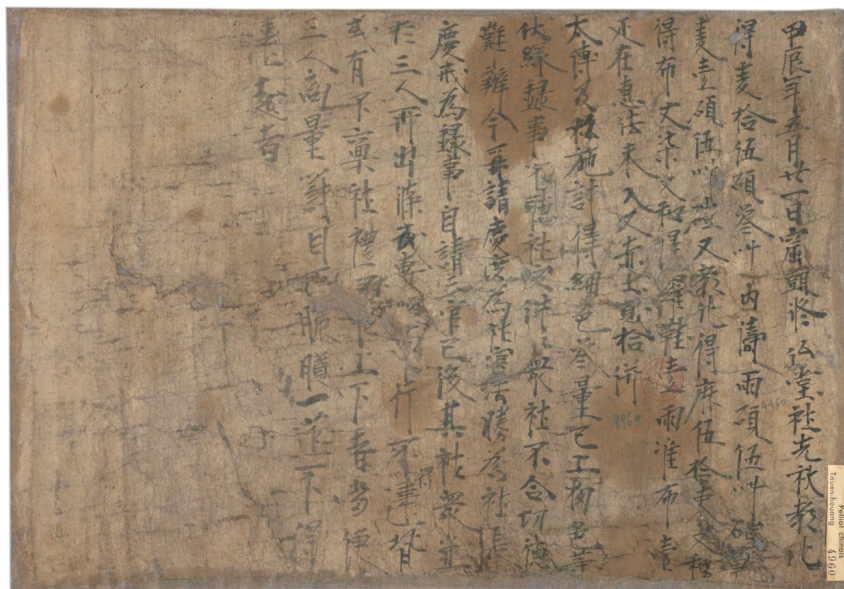 甲辰年五月廿一日窟頭修仏堂社先秋教化
得麥拾伍碩叄㪷內濤兩碩伍㪷磑
麥壹碩伍㪷又教化得麻伍拾束又和
得布丈柒又和得罹麤壹兩准布壹
疋在惠法未入又赤土貳拾併
太傅及私施計得細色叄量已上物色等
伏緣錄事不聽社官件件眾社不合功德
難辦今再請慶度為社官法勝為社長
慶戒為錄事自請三官已後其社眾並
於三人所出條式專 行不得違背
或有不稟社禮 上下者當便
三人商量罰目 膿膩一筵不得
違越者
4960
Pelliot chinois
Touen-houang
4960